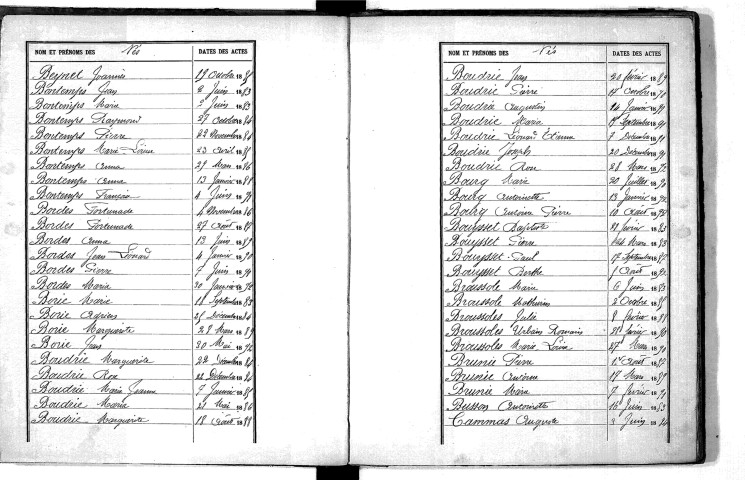 NOM ET PRÉNOMS DES Nés DATES DES ACTES
Beynel Joannès 19 Octobre 18
Bontemps Jean 2 Juin 1883
Bontemps Marie 2 Juin 1883
Bontemps Raymond 27 Octobre 1884
Bontemps Pierre 22 Novembre 1884
Bontemps Marie Louise 23 Avril 18
Bontemps Anna 29 Mars 1886
Bontemps Anna 13 Janvier 1888
Bontemps François 4 Juin 189
Bordes Fortunade Novembre 1886
Bordes Fortunade 27 Août 1887
Bordes Anna 13 Juin 1889
Bordes Jean Léonard 4 Janvier 1890
Bordes Pierre 7 Juin 189
Bordes Marie 30 Janvier 189
Borie Marie 18 Septembre 1883
Borie Cyprien 25 Décembre 1884
Borie Marguerite 28 Mars 1889
Borie Jean 20 Mai 189
Boudrie Marguerite 22 Décembre 188
Boudrie Rose 22 Décembre 1884
Boudrie Marie Jeanne 7 Janvier 188
Boudrie Maria 21 Mai 1886
Boudrie Marguerite 18 Août 1888
NOM ET PRÉNOMS DES Nés DATES DES ACTES
Boudrie Jean 20 février 1889
Boudrie Pierre 17 Octobre 189
Boudrie Augustin 14 Janvier 1891
Boudrie Maria Septembre 1891
Boudrie Léonard Etienne 7 Décembre 1891
Boudrie Joseph 20 Décembre 1891
Boudrie Rose 28 Mars 189
Bourg Marie 30 Juillet 189
Bourg Antoinette 13 Janvier 189
Bourg Antoine Pierre 10 Août 189
Bouysset Baptiste février 1883
Bouysset Pierre 24 Mars 1883
Bouysset Paul 17 Septembre 188
Bouysset Berthe Août 189
Broussole Marie 6 Juin 1883
Broussole Mathurin 2 Octobre 188
Broussoles Julie 8 février 1888
Broussoles Urbain Romain 28 février 1890
Broussoles Marie Louise 27 Mars 189
Brunie Pierre 1er Août 188
Brunie Antoine 17 Mars 188
Brunie Marie 7 février 189
Busson Antoinette 16 Juin 1883
Cammas Auguste 3 Juin 1884